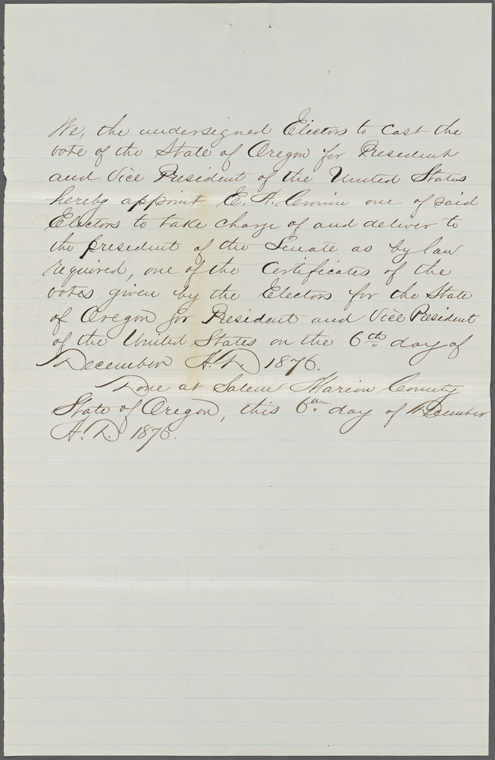 We, the undersigned Electors to cast the
vote of the State of Oregon for President
and Vice President of the United States
hereby appoint E. A. Cronin one of said
Electors to take charge of and deliver to
the president of the Senate as by law
required, one of the Certificates of the
votes given by the Electors for the State
of Oregon for President and Vice President
of the United States on the 6th day of
December A.D. 1876.
Done at Salem Marion County
State of Oregon, this 6th day of December
A.D. 1876.